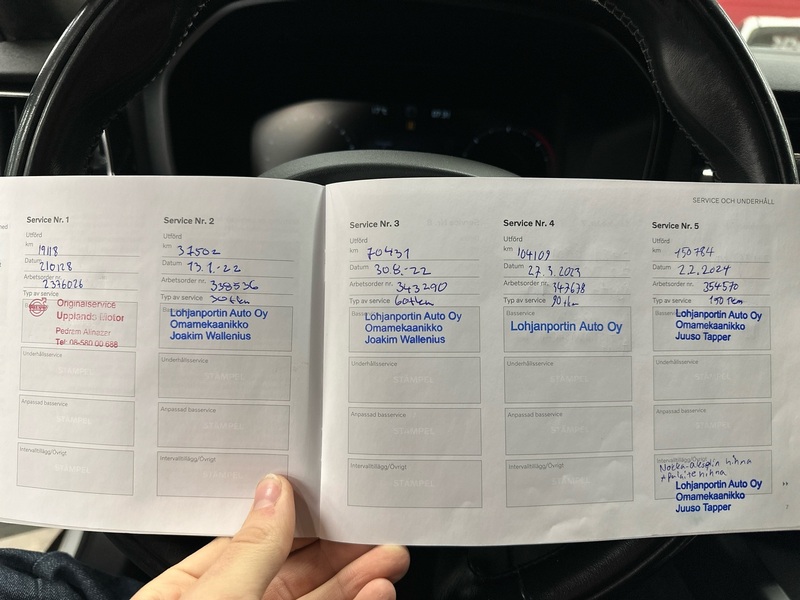 SERVICE OCH UNDERHÅLL
Service Nr. 1
Utförd
km 19118
Datum 210128
Arbetsorder nr. 2376026
Typ av service
Originalservice
Upplands Motor
Pedram Alinazar
Tel: 08-580 00 688
Underhållsservice
STÄMPEL
Anpassad basservice
STÄMPEL
Intervalltillägg/Övrigt
Service Nr. 2
Utförd
km 37502
Datum 13.1.-22
Arbetsorder nr. 335536
Typ av service
Lohjanportin Auto Oy
Omamekaanikko
Joakim Wallenius
Underhållsservice
STÄMPEL
Anpassad basservice
STÄMPEL
Intervalltillägg/Övrigt
Service Nr. 3
Utförd
km 70431
Datum 30.8.-22
Arbetsorder nr. 343290
Typ av service 60tkm
Lohjanportin Auto Oy
Omamekaanikko
Joakim Wallenius
Underhållsservice
STÄMPEL
Anpassad basservice
STÄMPEL
Intervalltillägg/Övrigt
STÄMPEL
Service Nr. 4
Utförd
km 104109
Datum 27.3.2023
Arbetsorder nr. 347678
Typ av service 90tkm
Basservice
Lohjanportin Auto Oy
Underhållsservice
STÄMPEL
Anpassad basservice
STÄMPEL
Intervalltillägg/Övrigt
STÄMPEL
Service Nr. 5
Utförd
km 150784
Datum 2.2.2024
Arbetsorder nr. 354570
Typ av service 150 tkm
Lohjanportin Auto Oy
Omamekaanikko
Juuso Tapper
Underhållsservice
STÄMPEL
Anpassad basservice
STÄMPEL
Intervalltillägg/Övrigt
Nokka-akselin hihna
+ apulaitehihna
Lohjanportin Auto Oy
Omamekaanikko
Juuso Tapper